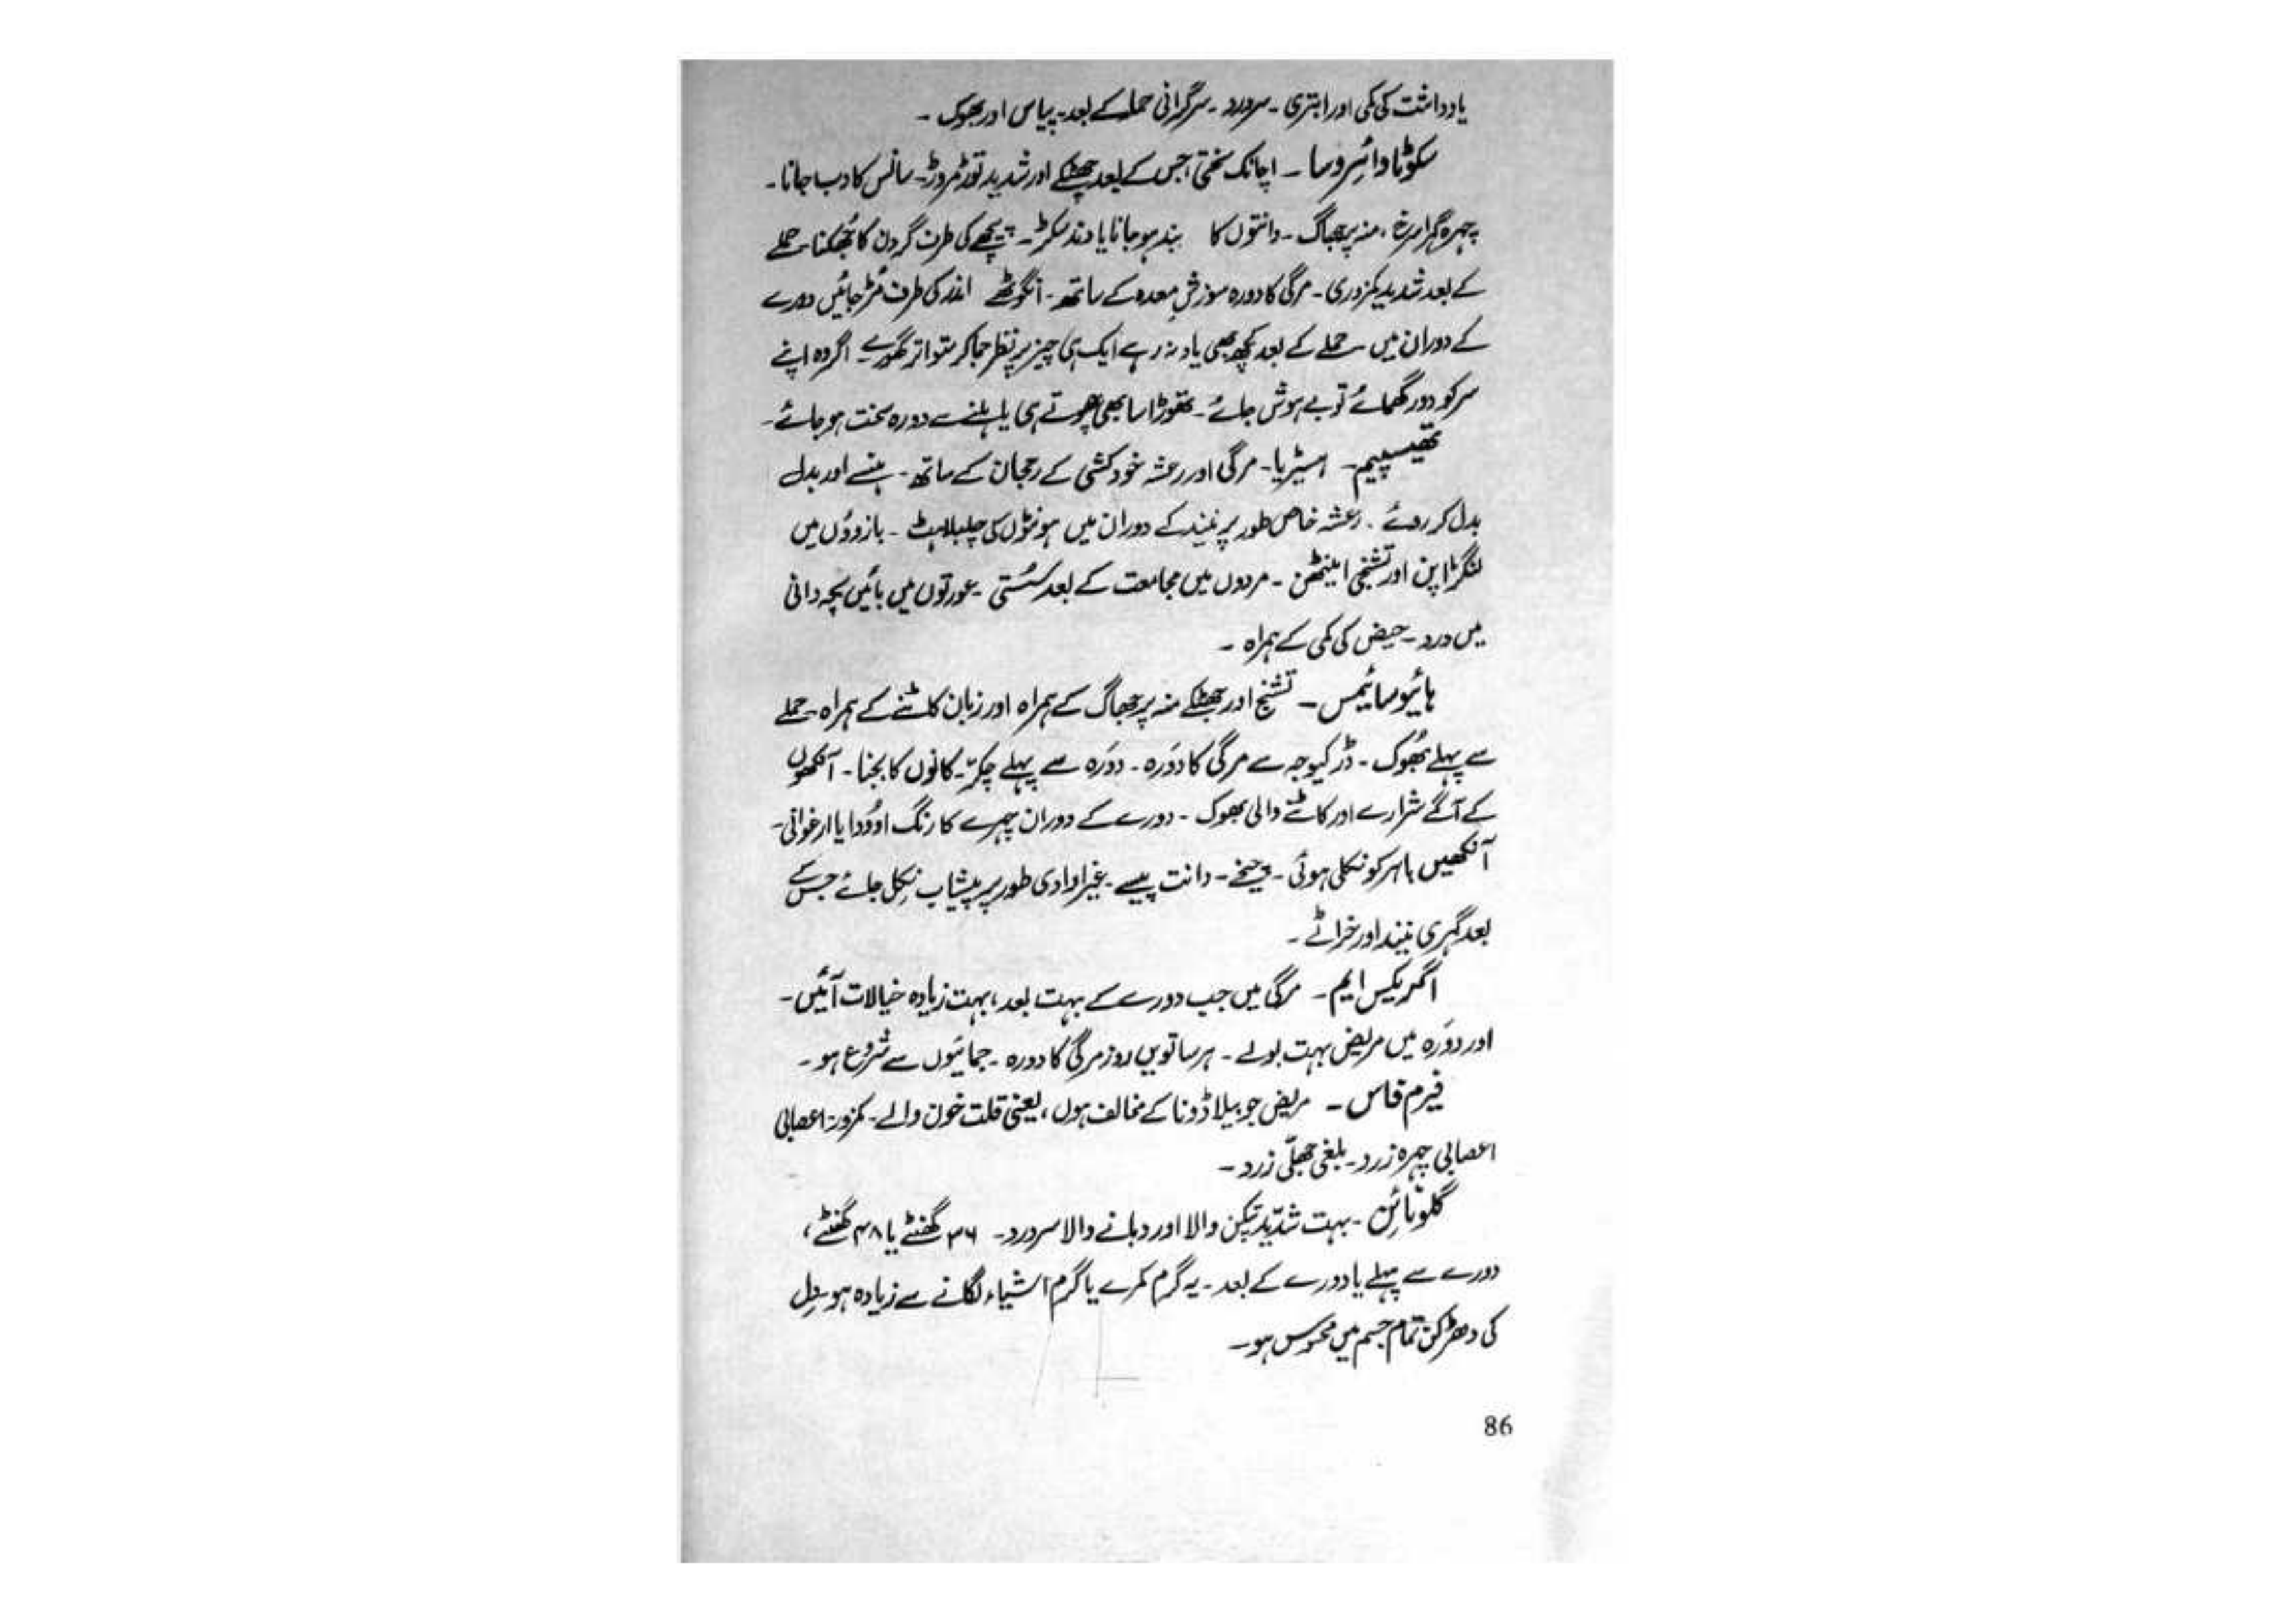 یادداشت کی کمی اور ابتری - سردرد - سرگرانی حملہ کے بعد - پیاس اور بھوک -
سکوٹا وائروسا - اچانک سختی جس کے بعد جھٹکے اور شدید توڑ مروڑ - سانس کا دب جانا -
چہرہ گہرا سرخ ، منہ پر جھاگ - دانتوں کا بند ہو جانا یا دندسکڑ - پیچھے کی طرف گردن کا جُھکنا حملے
کے بعد شدید کمزوری - مرگی کا دورہ سوزشِ معدہ کے ساتھ - انگوٹھے اندر کی طرف مُڑ جائیں دورے
کے دوران میں حملے کے بعد کچھ بھی یاد نہ رہے ایک ہی چیز پر نظر جما کر متواتر گھورے اگر وہ اپنے
سر کو دور گھمائے تو بے ہوش جائے - تھوڑا سا بھی چھوتے ہی یا ہلنے سے دورہ سخت ہو جائے -
تھیسپیم - ہسٹریا - مرگی اور رعشہ خودکشی کے رحجان کے ساتھ - ہنسے اور بدل
بدل کر روئے . رعشہ خاص طور پر نیند کے دوران میں ہونٹوں کی چلبلاہٹ - بازووُں میں
لنگڑا پن اور تشنجی اینٹھن - مردوں میں مجامعت کے بعد سُستی - عورتوں میں بائیں بچہ دانی
میں درد - حیض کی کمی کے ہمراہ -
ہائیوسائیمس - تشنج اور جھٹکے منہ پر جھاگ کے ہمراہ اور زبان کاٹنے کے ہمراہ - حملے
سے پہلے بُھوک - ڈر کیوجہ سے مرگی کا دَورہ - دورَہ سے پہلے چکرّ - کانوں کا بجنا - آنکھوں
کے آگے شرارے اور کاٹنے والی بھوک - دورے کے دوران چہرے کا رنگ اووُدا یا ارغوانی -
آنکھیں باہر کو نکلی ہوئی - چیخے - دانت پیسے - غیر ارادی طور پر پیشاب نِکل جائے جس کے
بعد گہری نیند اور خراٹے -
اگریکس ایم - مرگی میں جب دورے کے بہت بعد ، بہت زیادہ خیالات آئیں -
اور دورَہ میں مریض بہت بولے - ہر ساتویں روز مرگی کا دورہ - جمائیوں سے شروع ہو -
فیرم فاس - مریض جو بیلاڈونا کے مخالف ہوں ، یعنی قلت خون والے - کمزور - اعصابی
اعصابی چہرہ زرد - بلغمی جھلّی زرد -
گلونائن - بہت شدید تپکن والا اور دبانے والا سردرد - ۳۶ گھنٹے یا ۴۸ گھنٹے ،
دورے سے پہلے یا دورے کے بعد - یہ گرم کمرے یا گرم اشیاء لگانے سے زیادہ ہو - دِل
کی دھڑکن تمام جسم میں محسوس ہو -
86